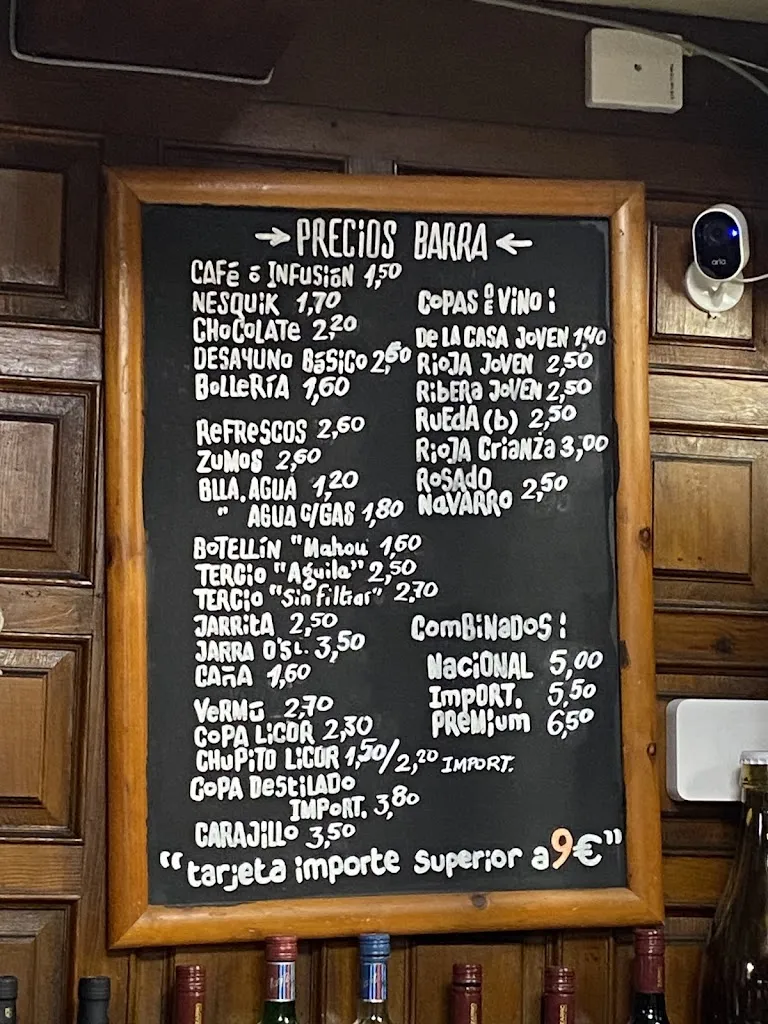 →PRECIOS BARRA←
CAFé ó INFUSIóN 1,50
NESQUIK 1,70
CHOCOLATE 2,20
DESAYUNO BáSICO 2,60
BOLLERÍA 1,60
REFRESCOS 2,60
ZUMOS 2,60
BLLA. AGUA 1,20
" AGUA C/GAS 1,80
BOTELLÍN "Mahou 1,60
TERCIO "Aguila" 2,50
TERCIO "Sin Filtrar" 2,70
JARRITA 2,50
JARRA 0'5L. 3,50
CAÑA 1,60
VERMú 2,70
COPA LICOR 2,30
CHUPITO LICOR 1,50/2,20 IMPORT.
COPA DESTILADO
IMPORT. 3,80
CARAJILLO 3,50
COPAS DE VINO:
De LA CASA JOVEN 1,40
RIOJA JOVEN 2,50
RIBERA JOVEN 2,50
RUEDA (b) 2,50
RIOJA CRIANZA 3,00
ROSADO
NAVARRO 2,50
COMBINADOS:
NACIONAL 5,00
IMPORT. 5,50
PREMIUM 6,50
"tarjeta importe superior a 9€"
arlo